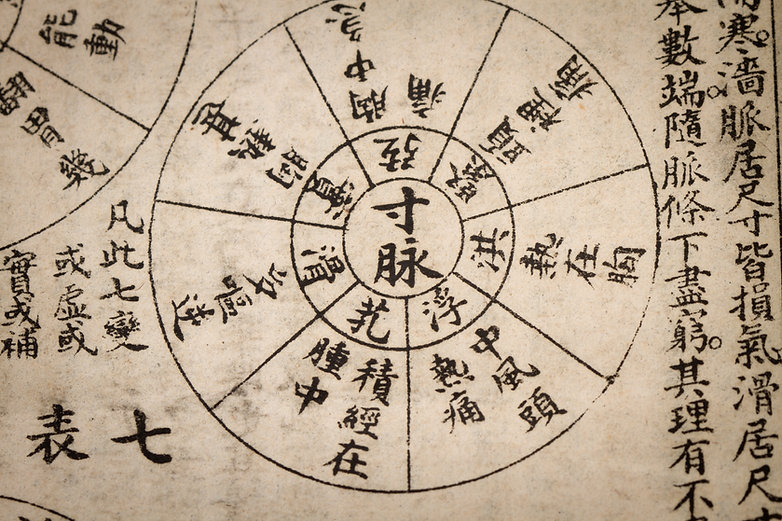 寒。濇脈居尺寸皆損氣。滑居尺
數端隨脈條下盡窮。其理有不
寸脉
浮
中風頭
熱痛
芤
積經在
腫中
滑
嘔逆
實
胸熱
中急
痛
緊
頭
洪
胸在熱
凡此七變
或虛或
實或補
七表
動
能
翻胃幾